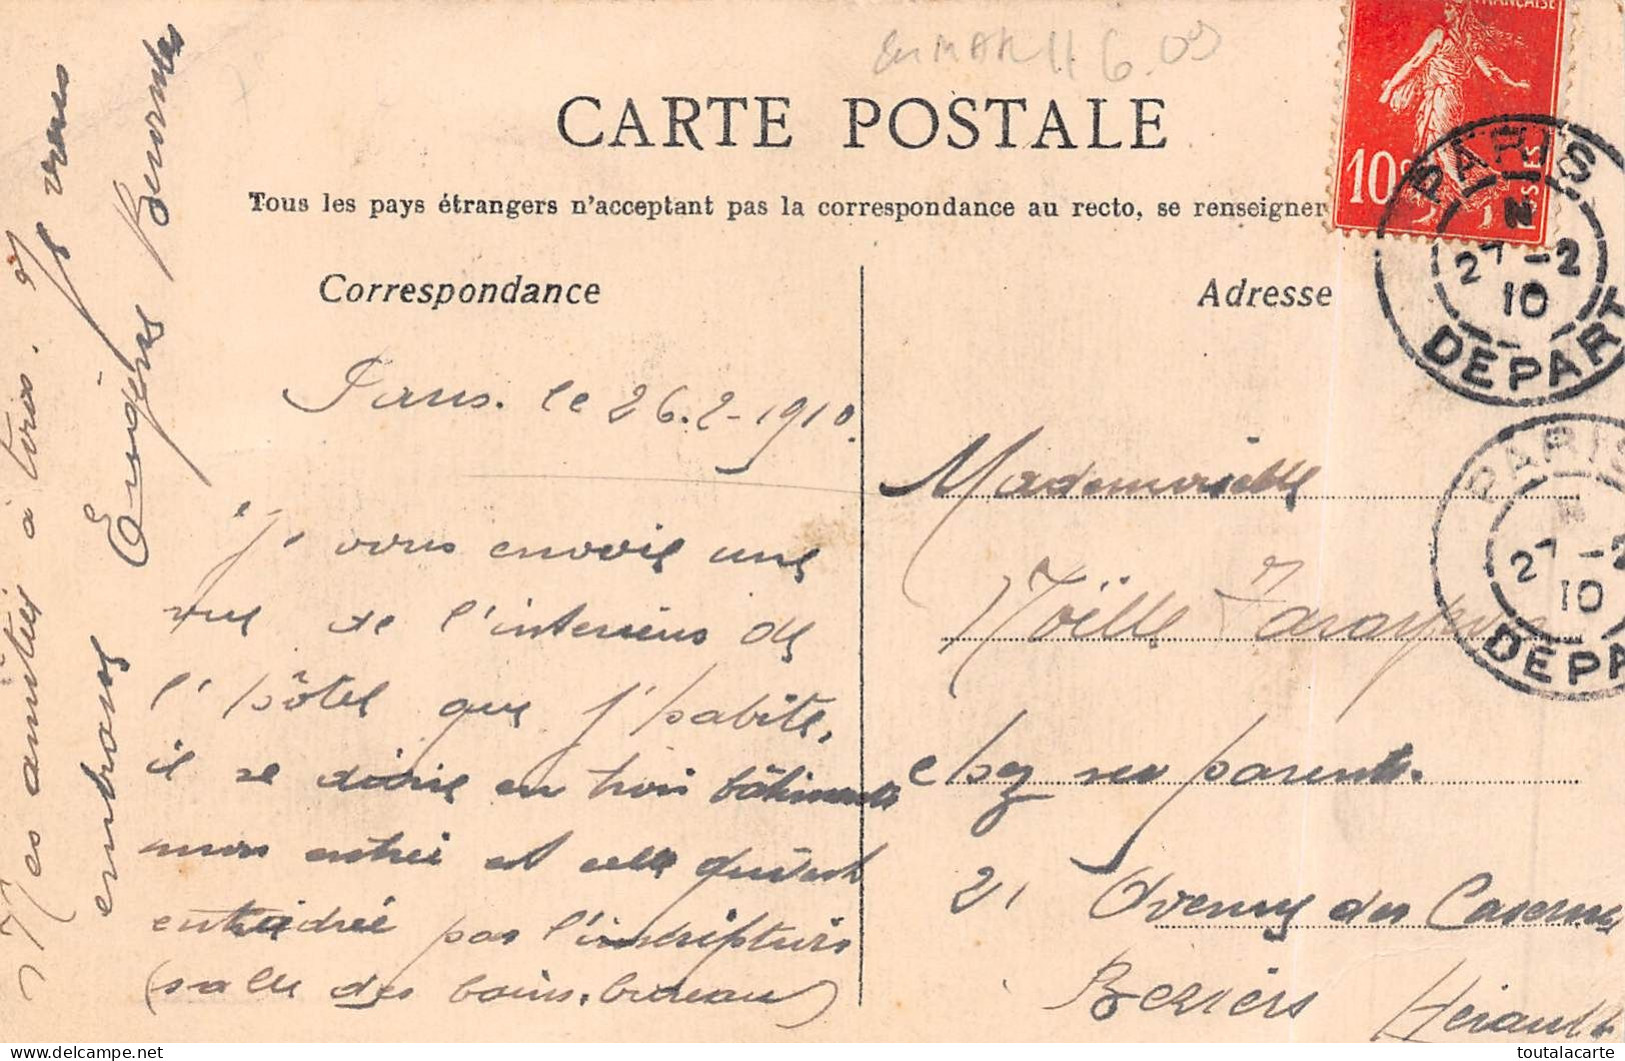 CARTE POSTALE
Tous les pays étrangers n'acceptant pas la correspondance au recto, se renseigner
Correspondance
Adresse
FRANÇAISE
10c
PARIS
27-2
10
DEPART
PARIS
27-2
10
DEPA
Paris. le 26.2-1910.
Je vous envoie une
vue de l'interieur de
l'hôtel que j'habite,
il se divise en trois bâtiments
mon entrée est celle qui est
par l'inscription
(salle des bains, bureau)
Mes amitiés à tous. je vous
embrasse Eugène
Mademoiselle
Noëlle
chez ses parents.
21 Avenue des Casernes
Beziers Hérault
toutalacarte
www.delcampe.net